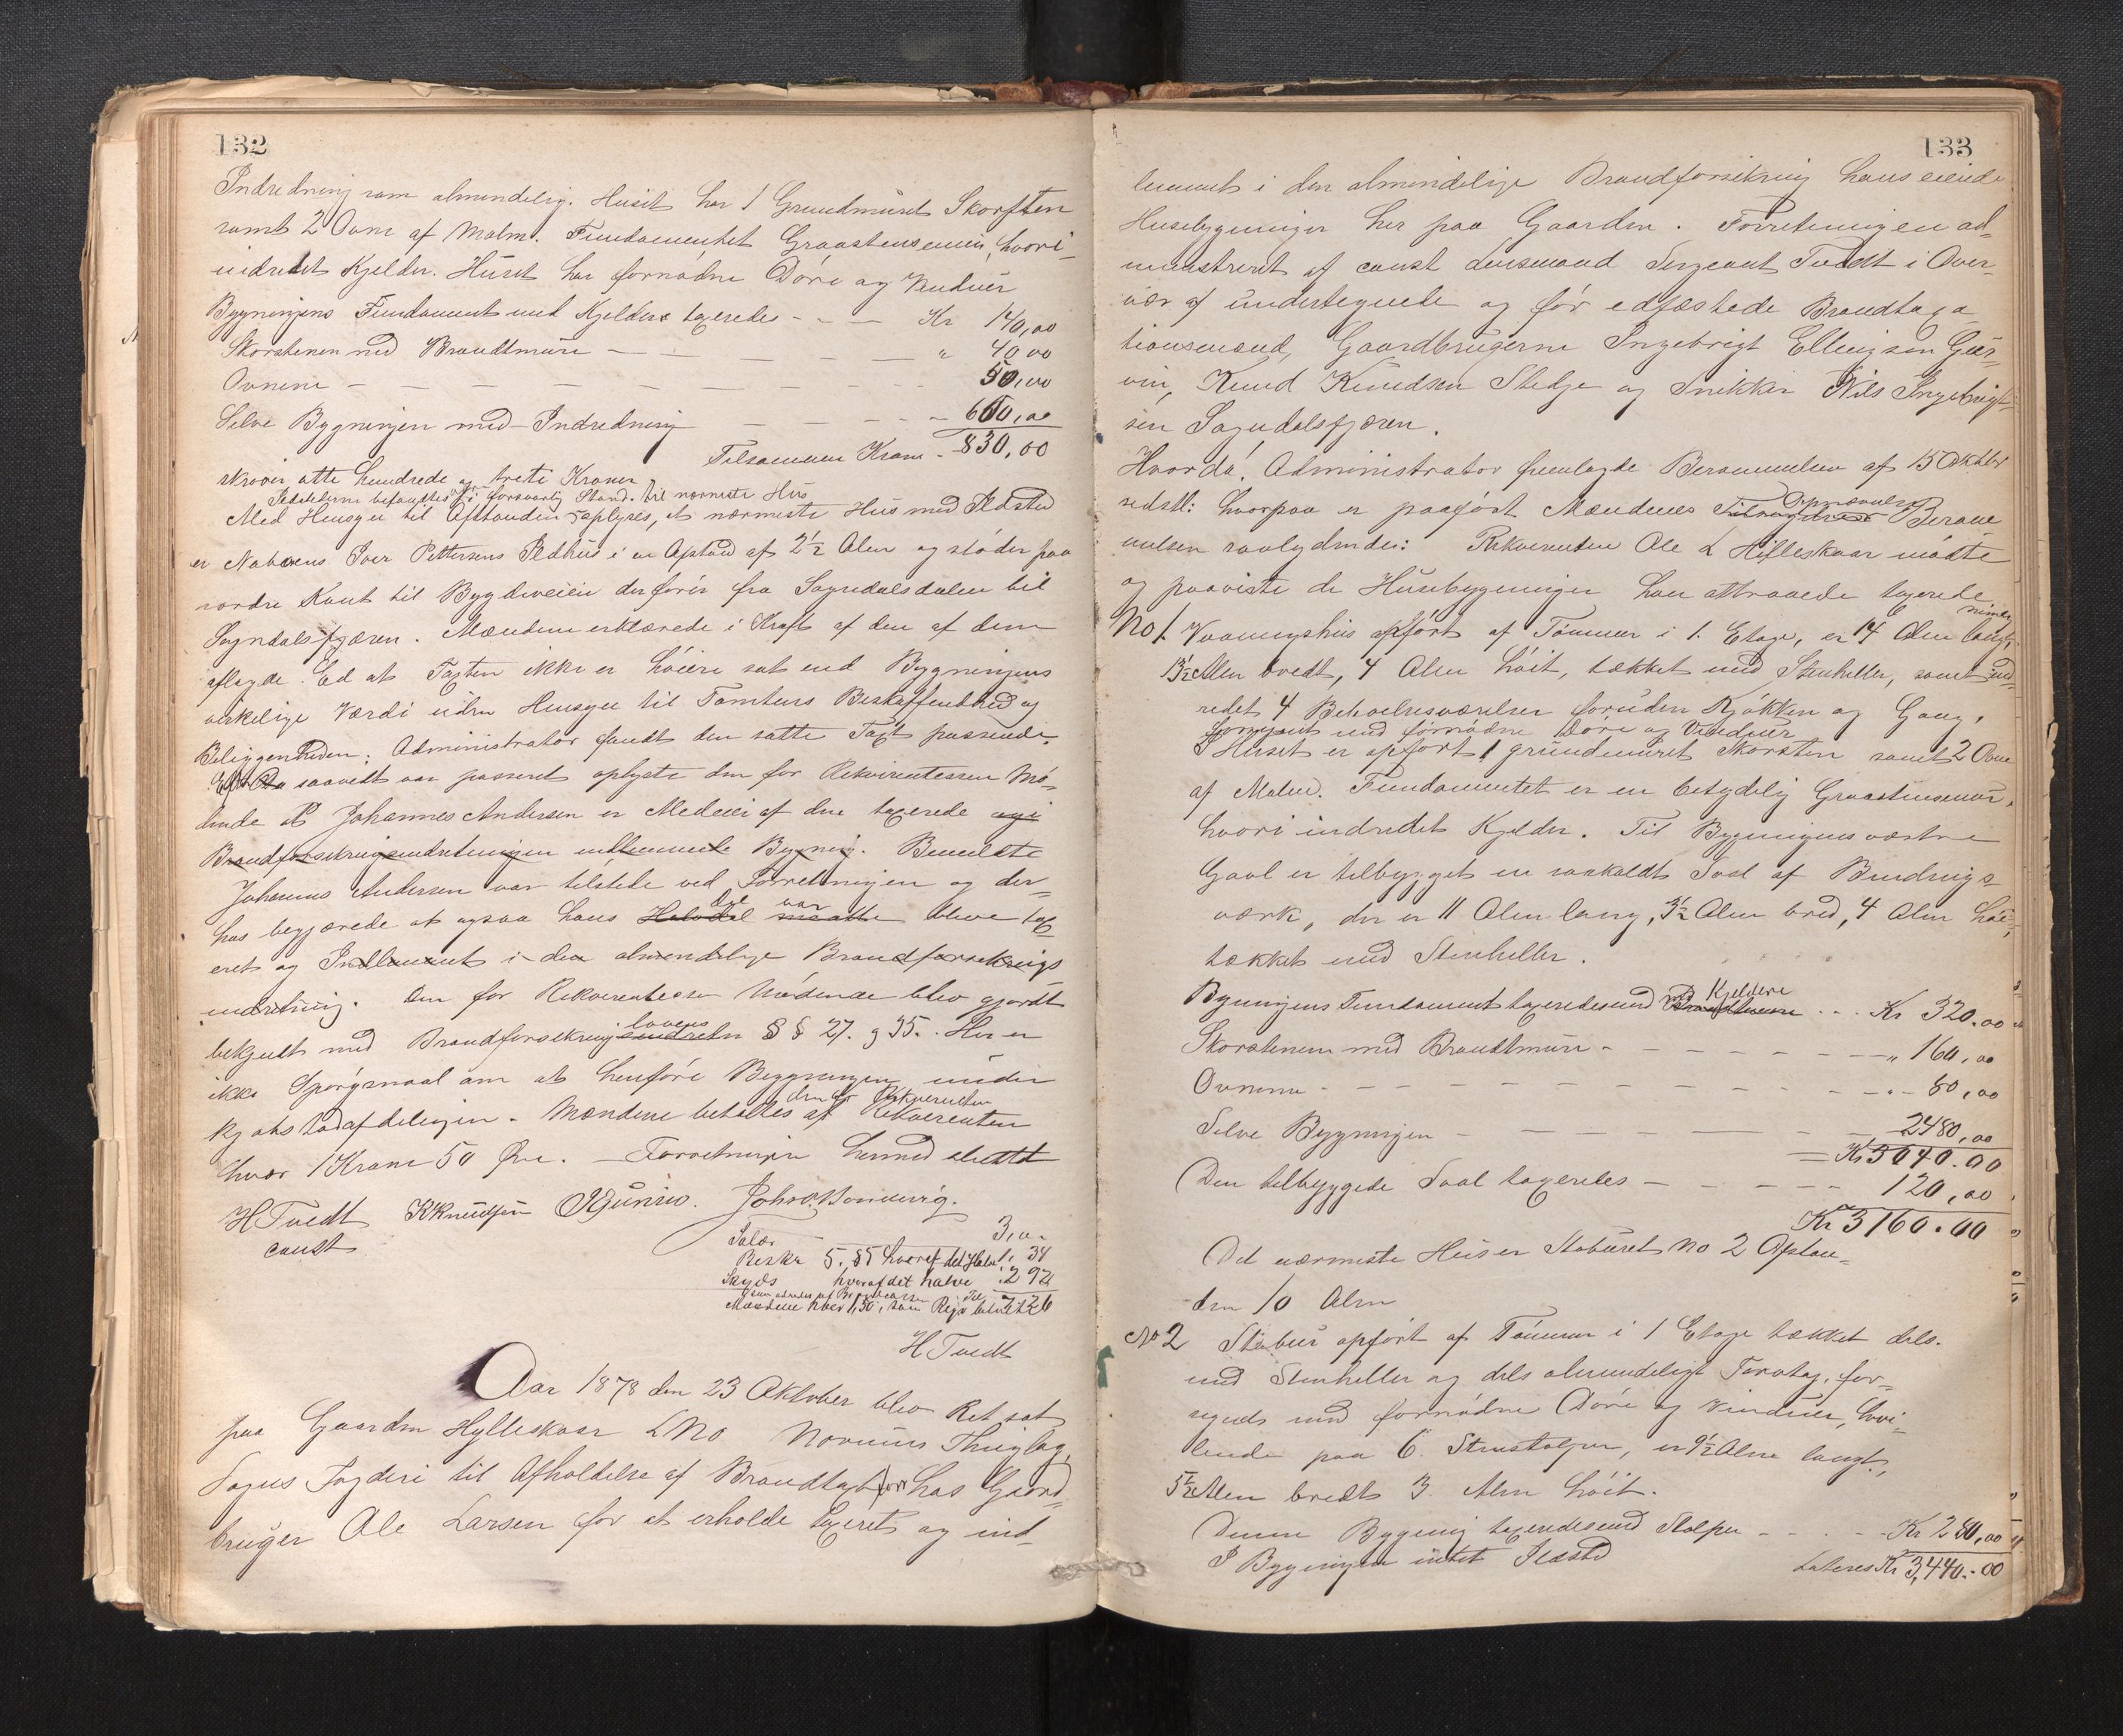 132
Indredning som almindelig. Huset har 1 Grundmuret Skorsten
samt 2 Ovne af Malm. Fundamentet Graastensmuur, hvori
indredet Kjelder. Huset har fornødne Døre og Vinduer
Bygningens Fundament med Kjelder taxeredes - - — Kr 140,00
Skorstenen med Brandtmure — — — — " 40,00
Ovnene — — — — — — 50,00
Selve Bygningen med Indredning — — — 600,00
Tilsammen Kroner 830,00
skriver otte hundrede og treti Kroner
Ildstederne befandtes i forsvarlig Stand. til nærmeste Hus
Med Hensyn til Afstanden oplyses, at nærmeste Hus med Ildsted
er Naboens Iver Pettersens Ildhus i en Afstand af 2½ Alen og støder paa
nordre Kant til Bygdeveien der fører fra Sogndalsdalen til
Sogndalsfjæren. Mændene erklærede i Kraft af den af dem
aflagde Ed at Taxten ikke er høiere sat end Bygningens
virkelige Værdi uden Hensyn til Tomtens Beskaffenhed og
Beliggenheden. Administrator fandt den satte Taxt passende.
Efter saavidt var passeret oplyste den for Rekvirentessen Mø-
dende at Johannes Andersen er Medeier af den taxerede og i
Brandforsikringsindretningen indlemmede Bygning. Bemeldte
Johannes Andersen var tilstede ved Forretningen og der-
hos begjærede at ogsaa hans Halvdel del maatte var blive tax-
eret og Indlemmet i den almindelige Brandforsikrings
indretning. Den for Rekvirentessen Mødende blev gjordt
bekjendt med Brandforsikringsindretn lovens §§ 27. og 35. Her er
ikke Spørgsmaal om at henføre Bygningen under
kjøbstadafdelingen. Mændene betaltes af den for Rekvirenten Rekvirenten
hver 1 Krone 50 Øre. — Forretningen hermed sluttet
H Tvedt KKnudsen
const
Salær 3,00
Beskr 5.85 hvoraf det Halve 1. 34
Skyds hvoraf det halve 2 92
Mændene hver 1,50, som Reqv. betalt 7 26
H Tvedt
Aar 1878 den 23 Oktober blev Ret sat
paa Gaarden Hylleskaar LNo Norums Thinglag,
Sogns Fogderi til Afholdelse af Brandtaxt for hos Gaard-
bruger Ole Larsen for at erholde taxeret og ind-
133
lemmet i den almindelige Brandforsikring hans eiende
Husebygninger her paa Gaarden. Forretningen ad-
ministreret af const Lensmand Sergeant Tvedt i Over-
vær af undertegnede og før edfæstede Brandtaxa-
tionsmænd, Gaardbrugerne Ingebrigt Ellingsen Gur-
vin, Knud Knudsen Stedje og Snikker Nils Ingebrigt-
sen Sogndalsfjæren.
Hvorda! Administrator fremlagde Berammelsen af 15 Oktbr
sidstl: hvorpaa er paaført Mændenes Opnævnelse Beram-
melsen saalydende: Rekvirenten Ole L Hilleskaar mødte
og paaviste de Husebygninger han attraaede taxerede, nemlig
No 1. Vaaningshus opført af Tømmer i 1. Etage, er 14 Alen langt,
13½ Alen bredt, 4 Alen høit, tækket med Stenheller, samt ind-
redet 4 Beboelsesværelser foruden Kjøkken og Gang,
forsynet med fornødne Døre og Vinduer
I Huset er opført 1 grundmuret Skorsten samt 2 Ovne
af Malm. Fundamentet er en betydelig Graastensmur,
hvori indredet Kjelder. Til Bygningens vestre
Gavl er tilbygget en saakaldt Sval af Bindings-
værk, der er 11 Alen lang, 3½ Alen bred, 4 Alen høi,
tækket med Stenheller.
Bygningens Fundament taxeredes med Kjeldere . . . Kr 320.00
Skorstenen med Brandtmure - - - - - - " 160,00
Ovnene - - - - - - - - - " 80,00
Selve Bygningen — — — — — 2480,00
= Kr 3040.00
Den tilbyggede Sval taxeredes — — — — 120,00
Kr 3160.00
Det nærmeste Hus er Stoburet No 2 Afstan-
den 10 Alen
No 2 Stabur opført af Tømmer i 1 Etage tækket dels
med Stenheller og dels almindeligt Torvtag, for-
synet med fornødne Døre og Vinduer, hvi-
lende paa 6 Stenstolper, er 9½ Alen langt,
5½ Alen bredt 3 Alen høit.
Denne Bygning taxeredes med Stolper - - . - Kr 280,00
I Bygningen intet Ildsted
Lateres Kr 3,440.-00